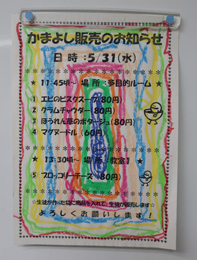 かまよし販売のお知らせ
日時:5/31(水)
★ 11:45頃~ 場所:多目的ルーム
1 エビのビスクスープ(80円)
2 クラムチャウダー(80円)
3 ほうれん草のポタージュ(80円)
4 マクヌードル(60円)
★ 13:30頃~ 場所:教室
5 ブロッコリーチーズ(80円)
よろしくお願いします!